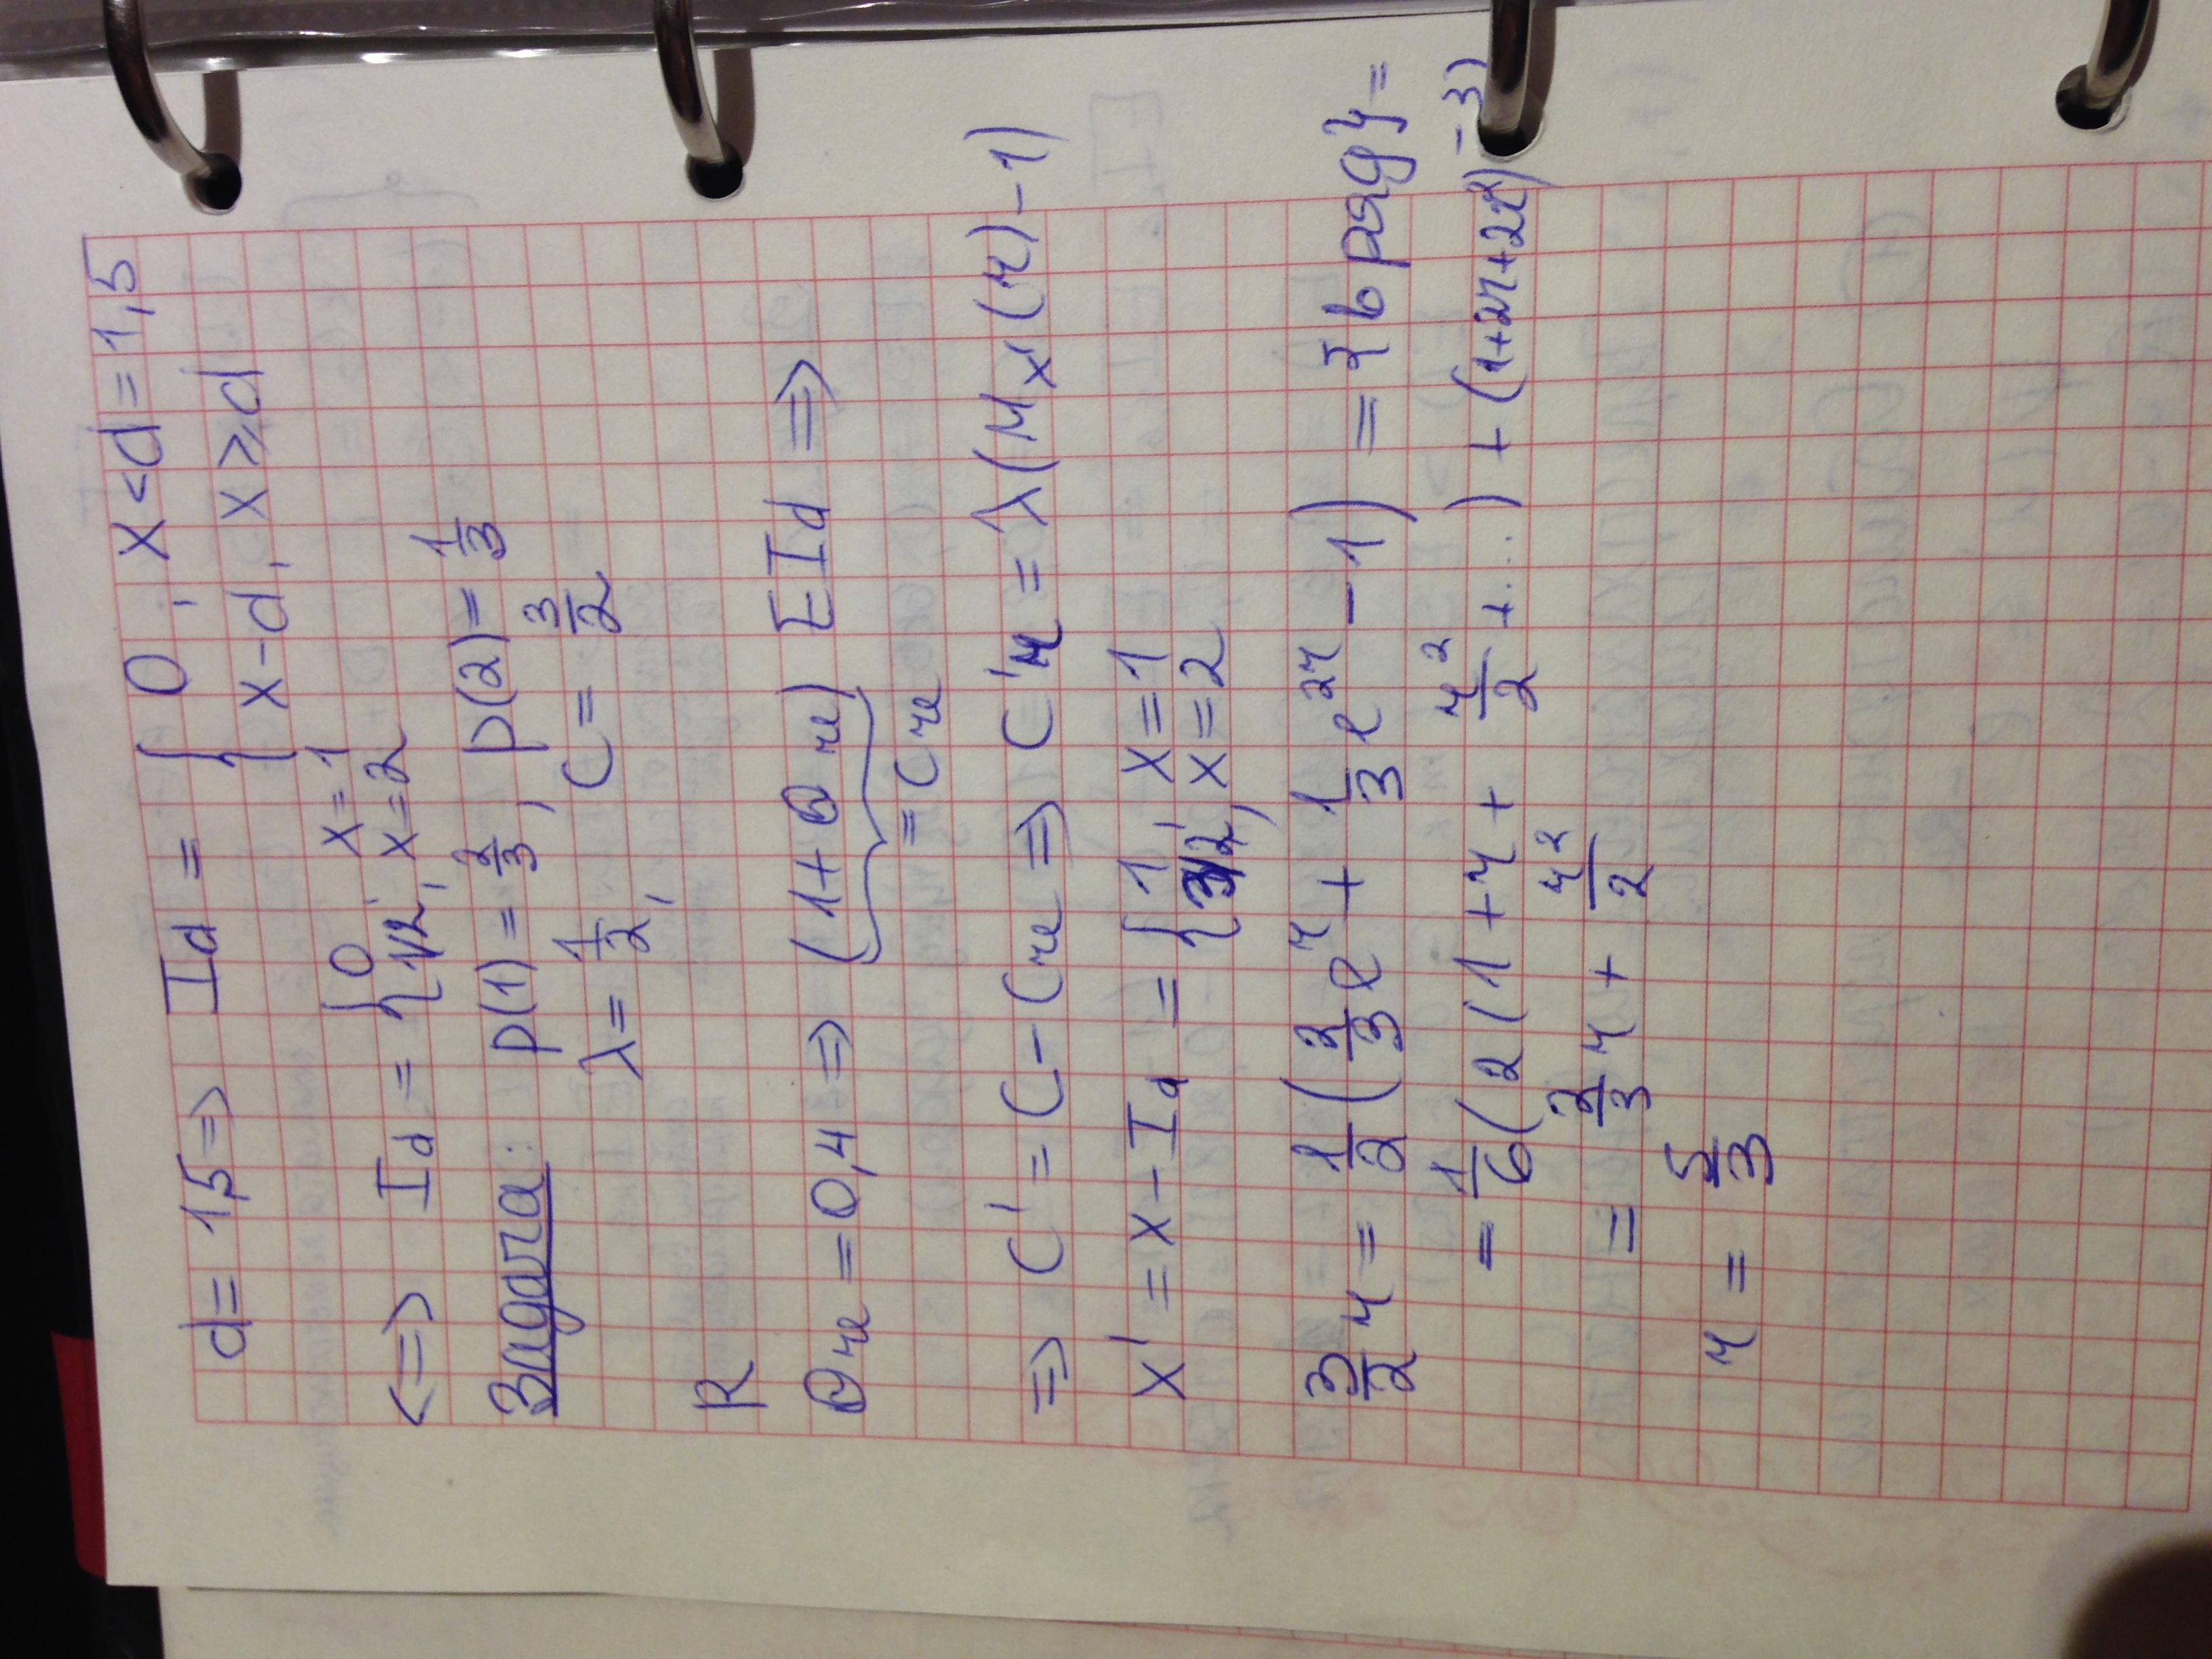 d = 1,5 => Id = { 0 , x < d = 1,5
x - d, x ≥ d
<=> Id = { 0 , x = 1
1/2, x = 2
Задача: p(1) = 2/3, p(2) = 1/3
λ = 1/2, C = 3/2
R
Θre = 0,4 => (1 + Θre) E Id =>
= Cre
=> C' = C - Cre => C'r = λ(Mx'(r) - 1)
X' = X - Id = { 1 , x = 1
3/2, x = 2
3/2 r = 1/2 (2/3 e^r + 1/3 e^2r - 1) = {в ряд} =
= 1/6 (2(1 + r + r²/2 + ....) + (1 + 2r + 2r²) - 3)
= 2/3 r + r²/2
r = 5/3